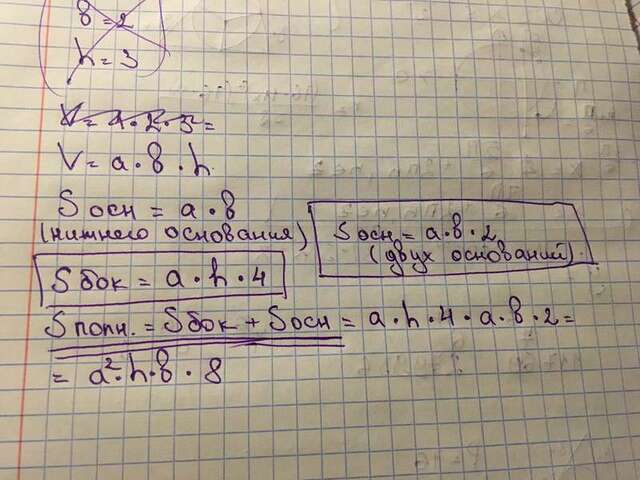 в = 2
h = 3
V = 4 · 2 · 3 =
V = a · в · h
S осн = a · в
(нижнего основания)
S осн. = a · в · 2
(двух оснований).
S бок = a · h · 4
S полн. = S бок + S осн = a · h · 4 · a · в · 2 =
= a² · h · в · 8